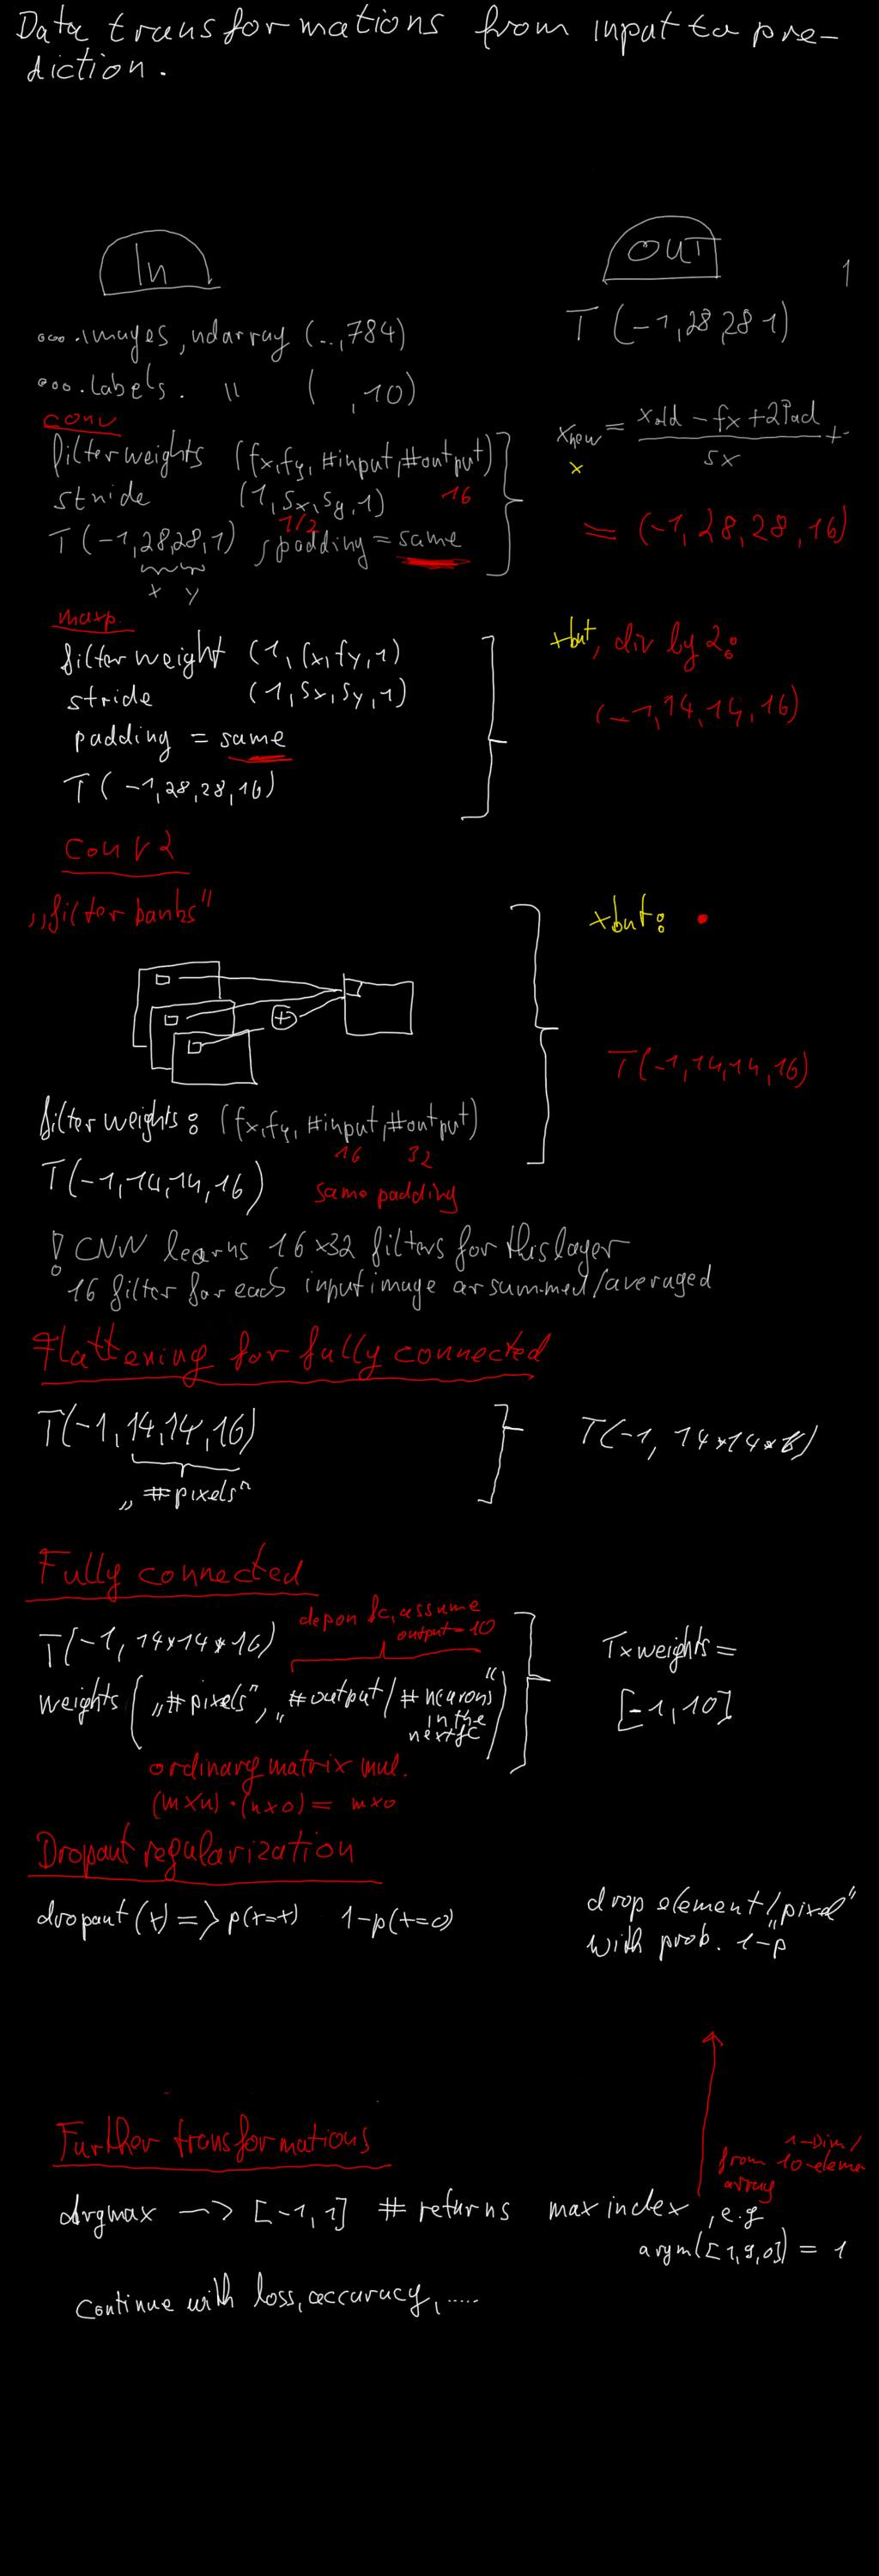 Data transformations from input to pre-
diction.
In
OUT
1
°°°.images, ndarray (..,784)
T (-1,28,28 1)
°°°.labels. " ( ,10)
conv
filterweights (fx,fy,#input,#output)
16
x_new = x_old - fx + 2Pad / sx +
x
stride (1,sx,sy,1)
1/2
T(-1,28,28,1), padding = same
= (-1,28,28,16)
x y
maxp.
filter weight (1,fx,fy,1)
stride (1,sx,sy,1)
padding = same
T(-1,28,28,16)
x but, div by 2:
(-1,14,14,16)
Conv2
„filter banks"
x but:
+
T(-1,14,14,16)
filterweights: (fx,fy,#input,#output)
16 32
T(-1,14,14,16)
same padding
! CNN learns 16x32 filters for this layer
16 filter for each input image ar summed/averaged
Flattening for fully connected
T(-1,14,14,16)
„#pixels"
T(-1, 14*14*16)
Fully connected
dep on fc, assume
output=10
T(-1, 14*14*16)
weights („#pixels", „#output/#neurons"
in the
next fc)
T x weights =
[-1,10]
ordinary matrix mul.
(mxn)·(nxo) = mxo
Dropout regularization
dropout(x) => p(x=x) 1-p(x=0)
drop element/„pixel"
with prob. 1-p
Further transformations
from 1-Dim/
10-eleme
array
Argmax -> [-1,1] # returns max index, e.g
argm([1,9,0]) = 1
continue with loss, accuracy, .....